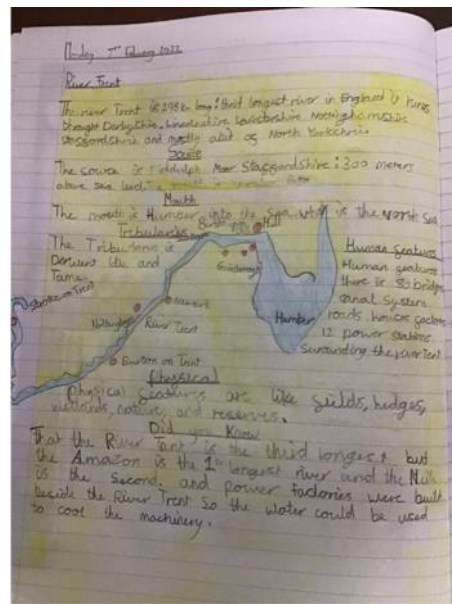 Monday 7th February 2022
River Trent
The river Trent is 298 km long: third longest river in England it runs
throught Derbyshire, Lincolnshire Leicestershire Nottinghamshire
Staffordshire and mostly abit of North Yorkshire
Source
The source is Biddulph Moor Staffordshire: 300 meters
above sea level
Mouth
The mouth is Humber into the Sea, which is the North Sea
Tributarys
Hull
The Tributaris is
Derwent Idle and
Tame.
Gainsborough
Human features
Human features
there is 80 bridges
canal system
roads houses factories
12 power stations
Surounding the river Trent
Stoke on Trent
Newark
Nottingham
River Trent
Humber
Burton on Trent
Physical
Physical features are like fields, hedges,
wetlands, nature, and reserves.
Did you Know
That the River Tent is the third longest, but
the Amazon is the 1st longest river and the Nile
is the second, and power factories were built
beside the River Trent so the water could be used
to cool the machinery.